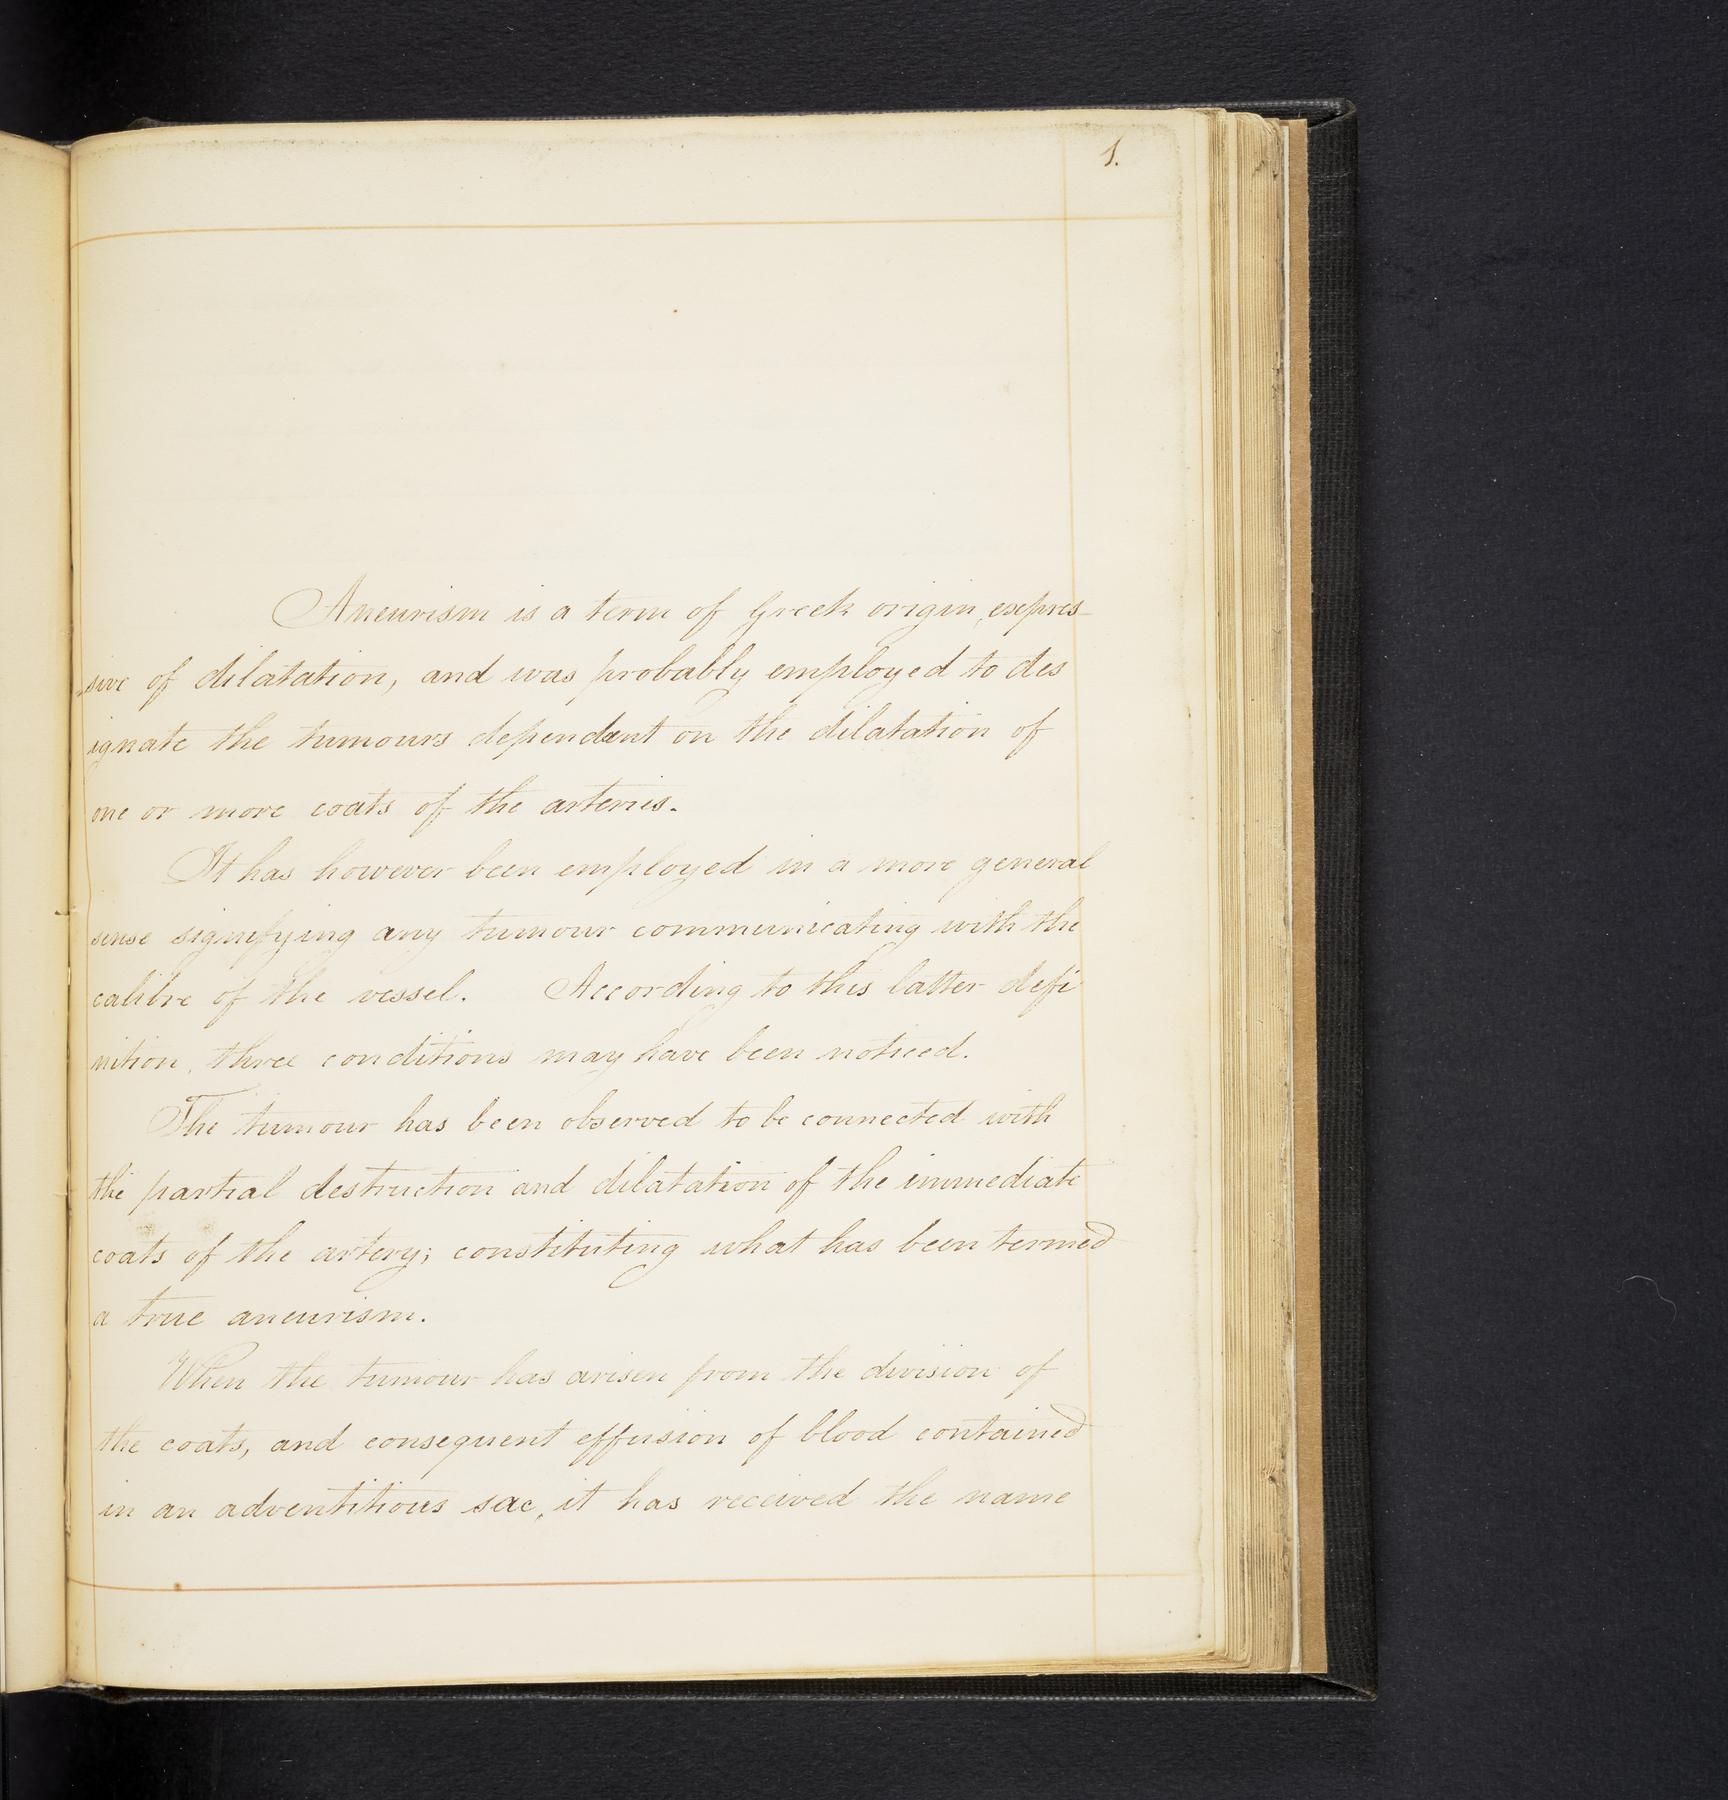 1.
Aneurism is a term of Greek origin, expres-
sive of dilatation, and was probably employed to des
ignate the tumours dependent on the dilatation of
one or more coats of the arteries.
It has however been employed in a more general
sense signifying any tumour communicating with the
calibre of the vessel. According to this latter defi
nition, three conditions may have been noticed.
The tumour has been observed to be connected with
the partial destruction and dilatation of the immediate
coats of the artery; constituting what has been termed
a true aneurism.
When the tumour has arisen from the division of
the coats, and consequent effusion of blood contained
in an adventitious sac, it has received the name